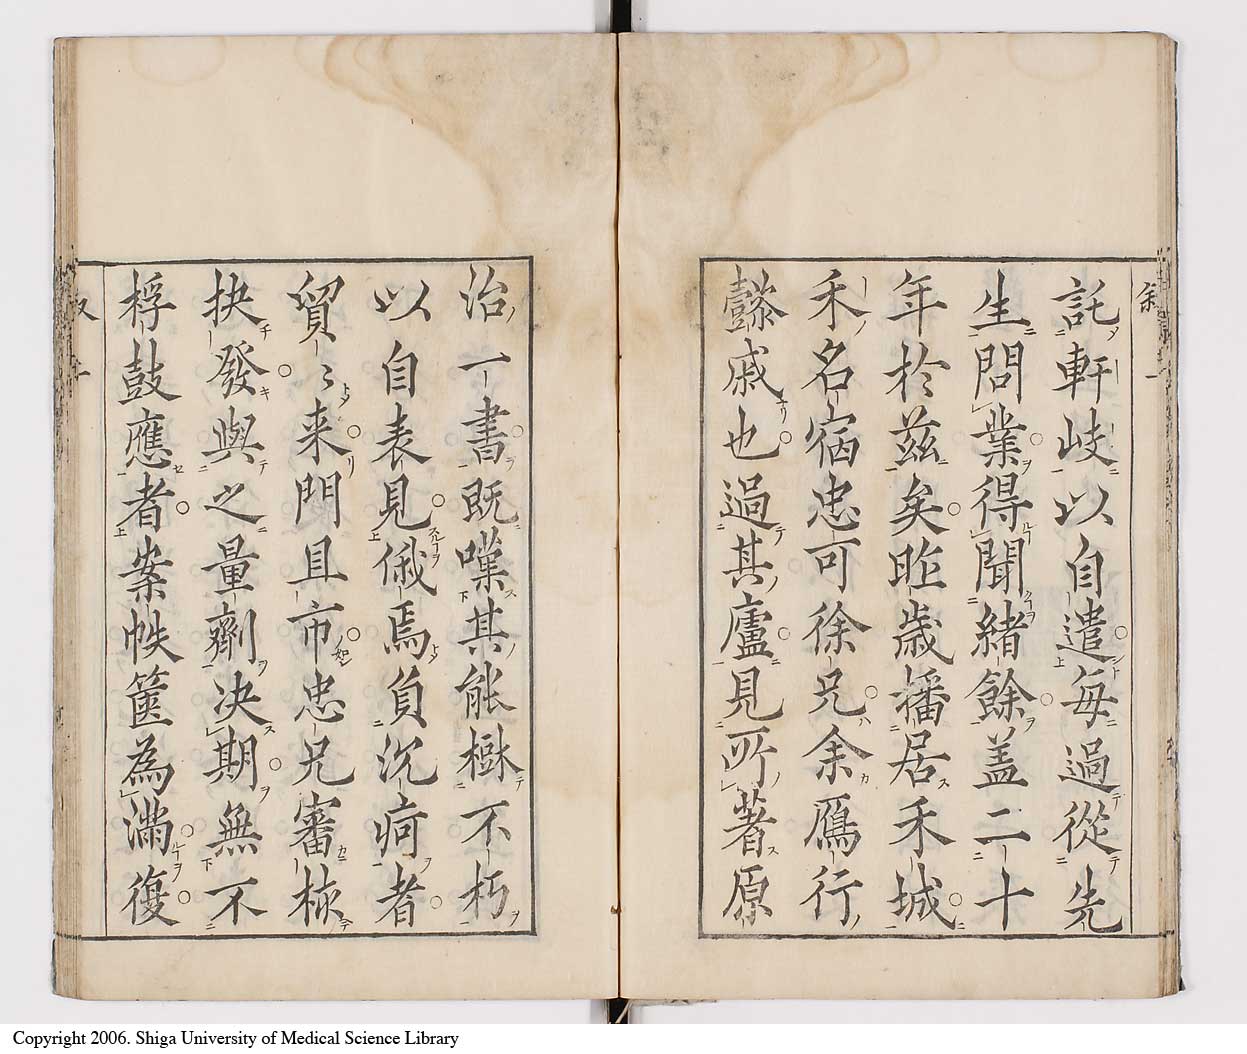 叙 一
託軒岐以自遣每過從先
生問業得聞緒餘盖二十
年於茲矣昨歳播居禾城
禾名宿忠可徐兄余鴈行
懿戚也過其廬見所著原
治一書既嘆其能樹不朽
以自表見俄焉負沉疴者
貿〻来門且市忠兄審核
抉發與之量劑决期無不
桴鼓應者案帙篋為滿復
Copyright 2006. Shiga University of Medical Science Library